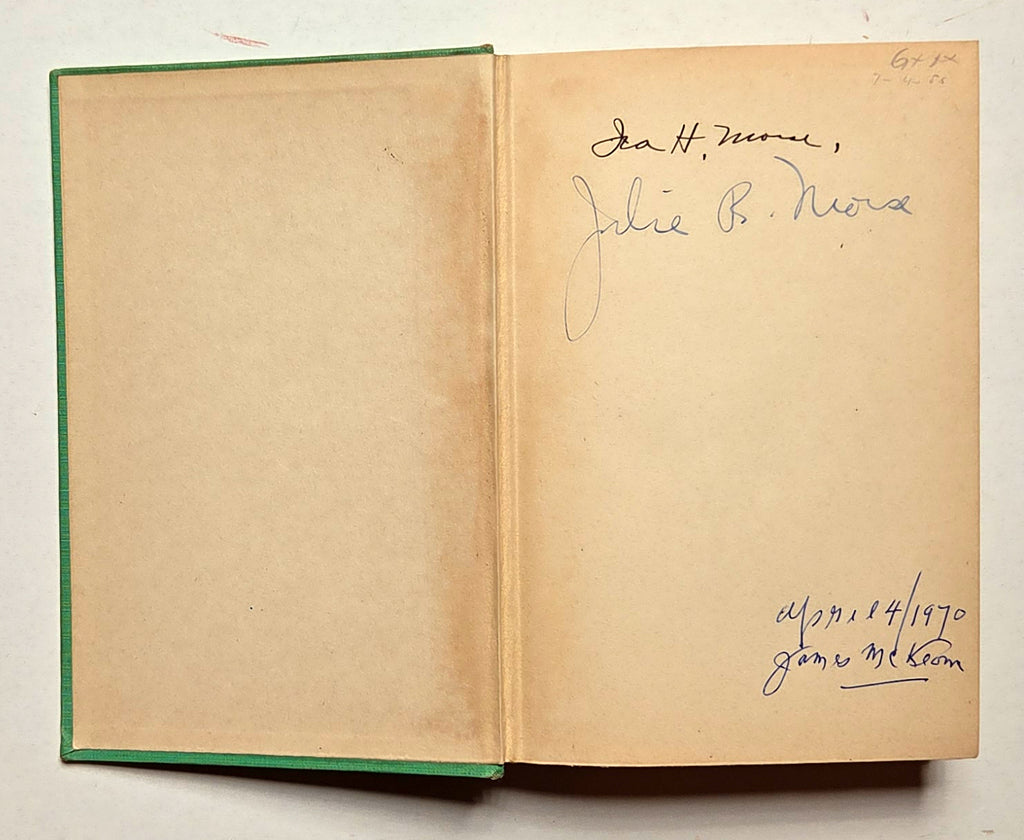 Ira H. Morse,
Julie B. Morse
April 4/1970
James McKeown